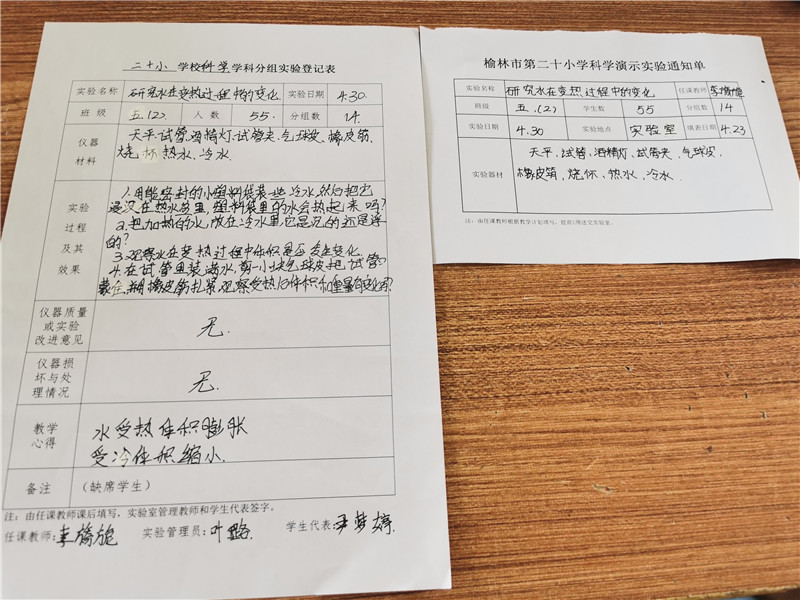 二十小 学校科学学科分组实验登记表
实验名称 研究水在变热过程中的变化 实验日期 4.30.
班级 五.(2) 人数 55. 分组数 14.
仪器材料 天平.试管.酒精灯.试管夹.气球皮.橡皮筋,
烧杯热水.冷水.
实验过程及其效果 1.用能密封的小塑料袋装一些冷水,然后把它
浸没在热水里,塑料袋里的水会热起来吗?
2.把加热的水,放在冷水里它是沉的还是浮
的?
3.观察水在变热过程中体积是否发生变化.
4.在试管里装满水,剪一小块气球皮把试管
蒙住,用橡皮筋扎紧,观察受热后体积和重量的变化?
仪器质量或实验改进意见 无.
仪器损坏与处理情况 无.
教学心得 水受热体积膨胀
受冷体积缩小.
备注 (缺席学生)
注:由任课教师课后填写,实验室管理教师和学生代表签字。
任课教师: 实验管理员:叶璐. 学生代表:王梦婷.
榆林市第二十小学科学演示实验通知单
实验名称 研究水在变热过程中的变化. 任课教师
班级 五.(2) 学生数 55 分组数 14
实验日期 4.30 实验地点 实验室 填表日期 4.23
实验器材 天平,试管,酒精灯,试管夹,气球皮,
橡皮筋,烧杯,热水,冷水.
注:由任课教师根据教学计划填写,提前1周送交实验室。